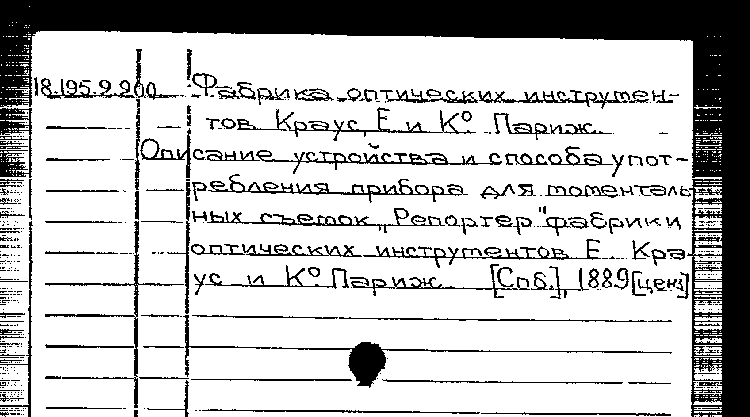 18.195.9.200 Фабрика оптических инструмен-
тов Краус, Е и К° Париж.
Описание устройства и способа упот-
ребления прибора для моменталь-
ных съемок „Репортер" фабрики
оптических инструментов Е. Кра-
ус и К° Париж. [Спб.], 1889 [ценз]